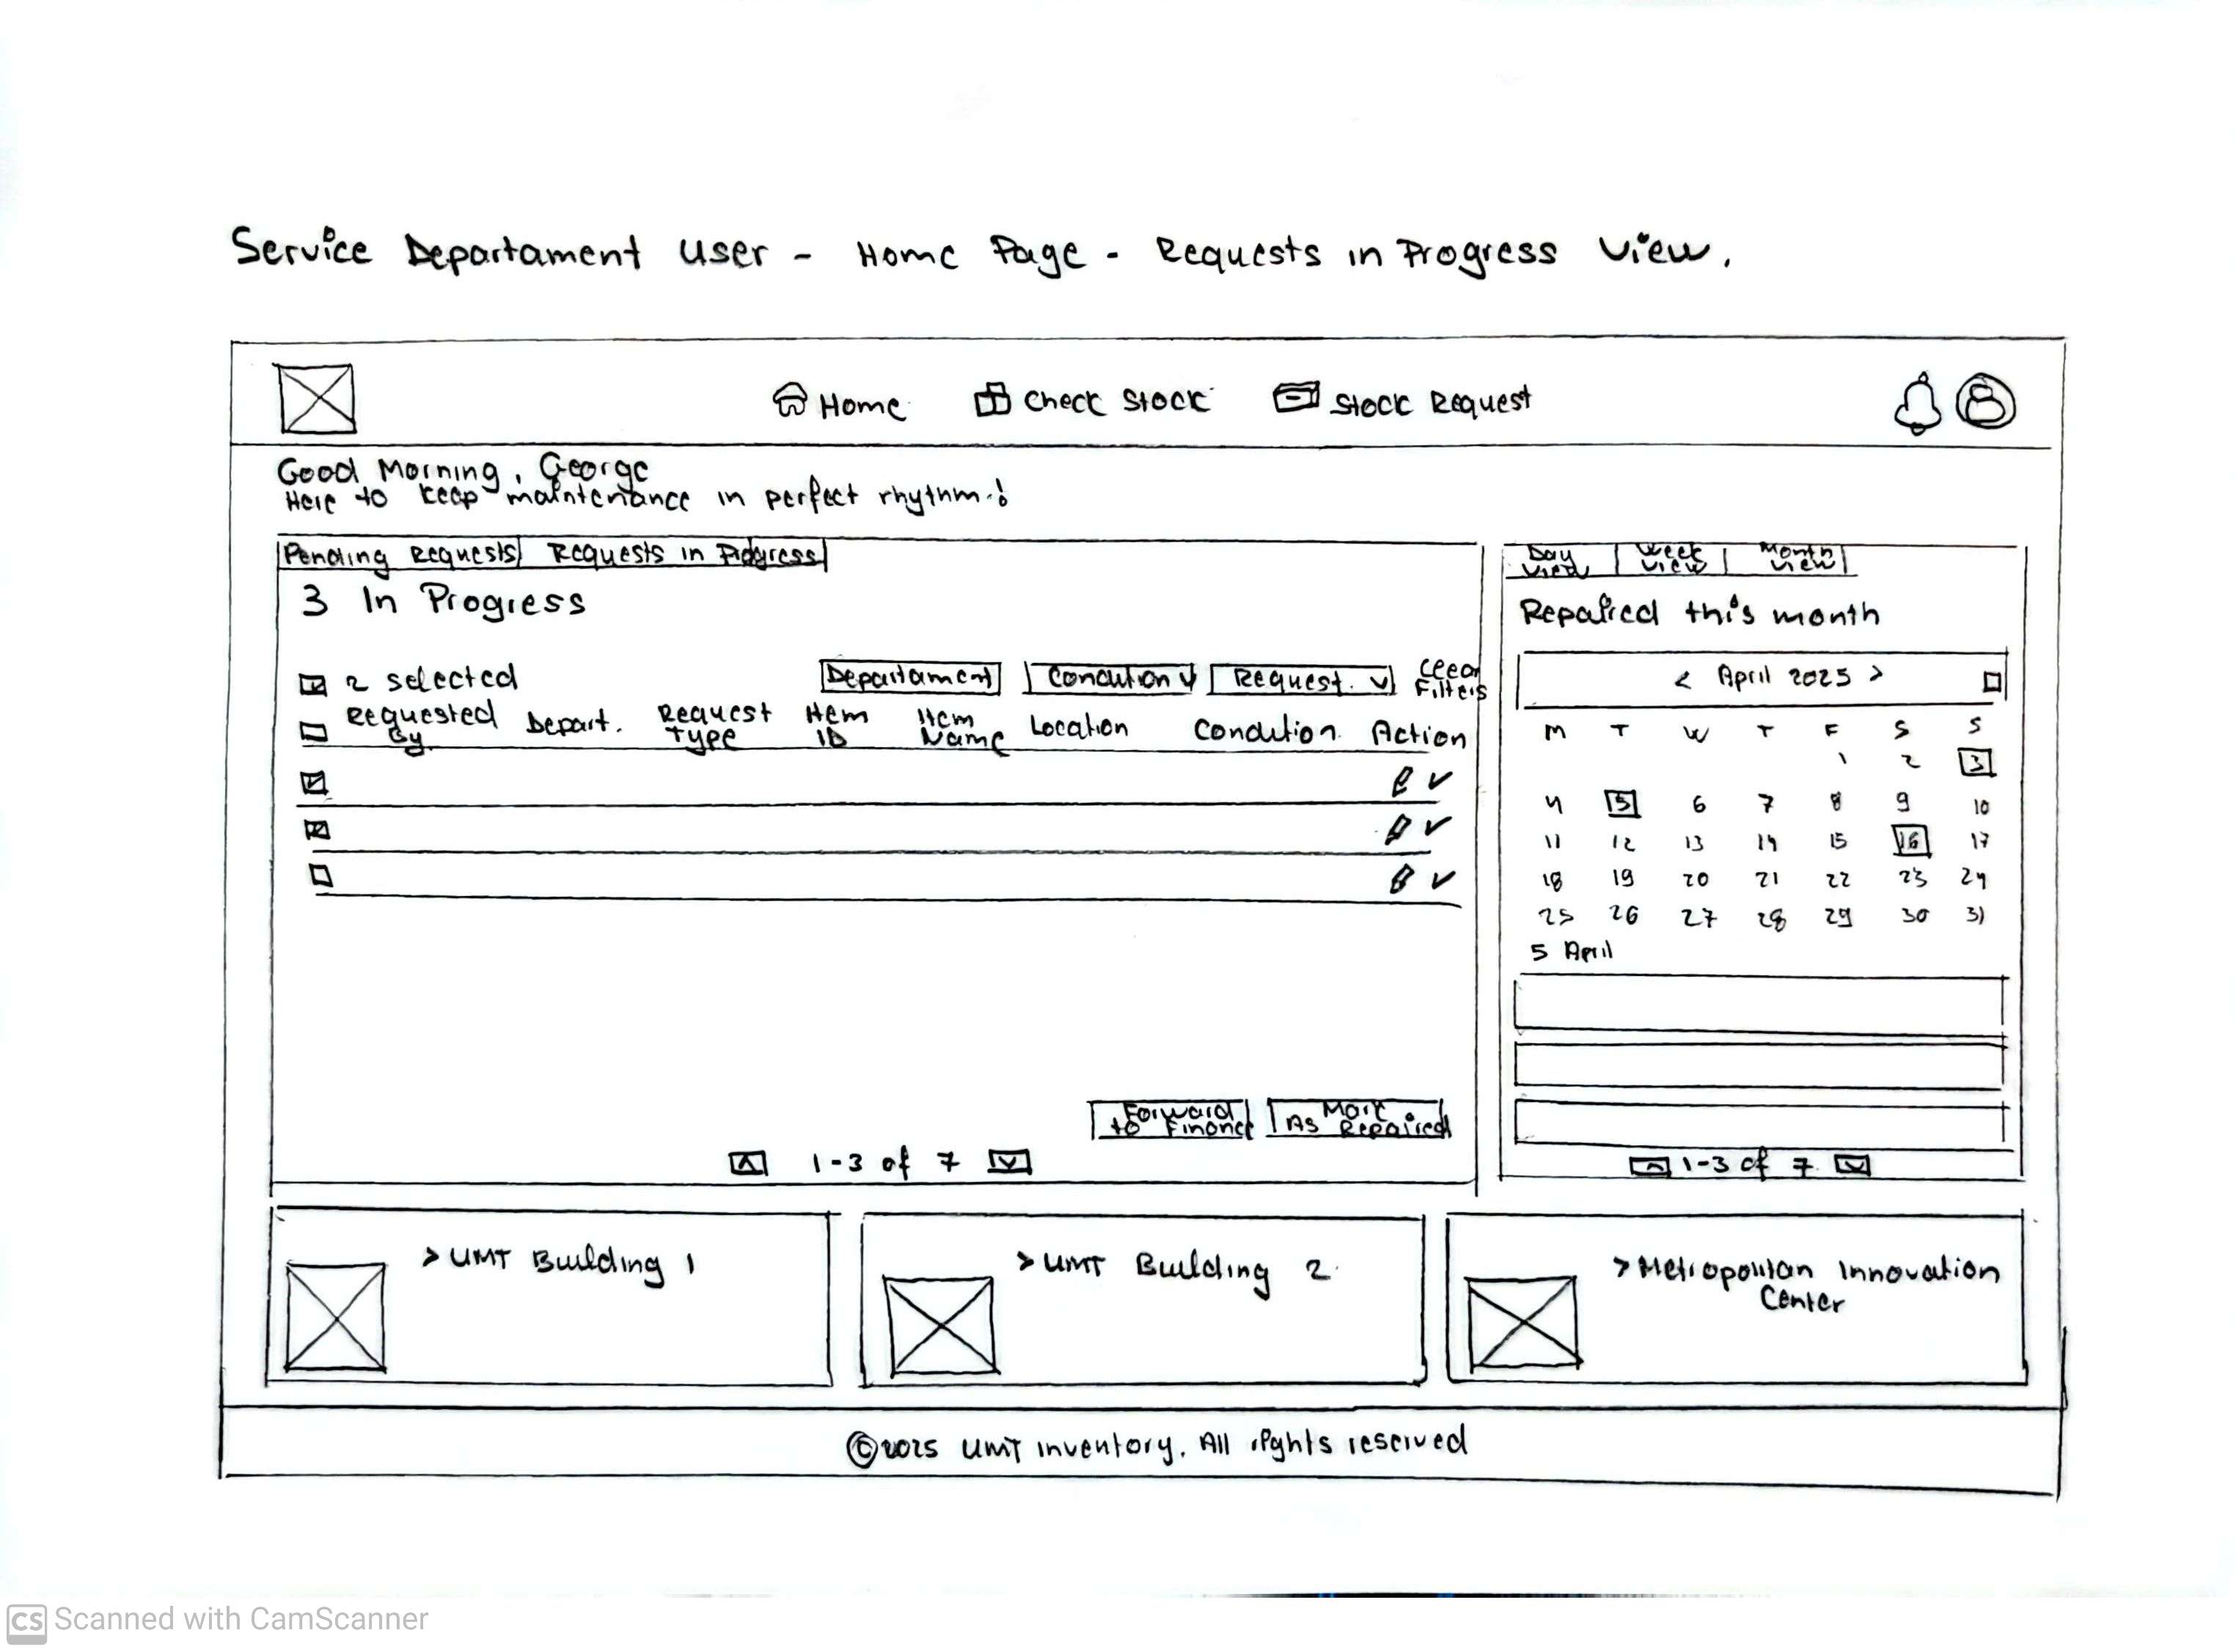 Service Departament User - Home Page - Requests in Progress View.
Home Check Stock Stock Request
Good Morning, George
Here to keep maintenance in perfect rhythm!
Pending Requests Requests in Progress
3 In Progress
2 selected Departament Condition Request. Clear Filters
Requested By Depart. Request Type Item ID Item Name Location Condition Action
Forward to Finance Mark As Repaired
1-3 of 7
Day View Week View Month View
Repaired this month
< April 2025 >
M T W T F S S
1 2 3
4 5 6 7 8 9 10
11 12 13 14 15 16 17
18 19 20 21 22 23 24
25 26 27 28 29 30 31
5 April
1-3 of 7
> UMT Building 1
> UMT Building 2
> Metropolitan Innovation
Center
©2025 UMT Inventory. All rights reserved
CS Scanned with CamScanner